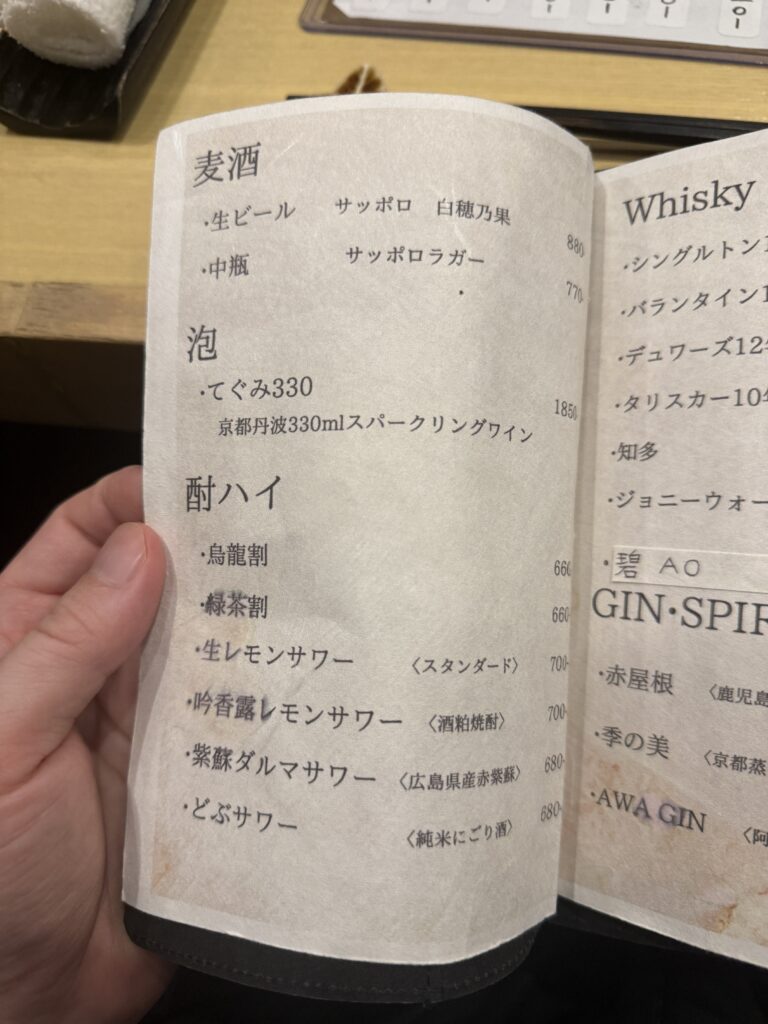 麦酒
・生ビール サッポロ 白穂乃果 880-
・中瓶 サッポロラガー 770-
泡
・てぐみ330 1850-
京都丹波330mlスパークリングワイン
酎ハイ
・烏龍割 660-
・緑茶割 660-
・生レモンサワー 〈スタンダード〉 700-
・吟香露レモンサワー 〈酒粕焼酎〉 700-
・紫蘇ダルマサワー 〈広島県産赤紫蘇〉 680-
・どぶサワー 〈純米にごり酒〉 680-
Whisky
・シングルトン1
・バランタイン1
・デュワーズ12年
・タリスカー10年
・知多
・ジョニーウォー
・碧 AO
GIN・SPIR
・赤屋根 〈鹿児島
・季の美 〈京都蒸
・AWA GIN 〈阿